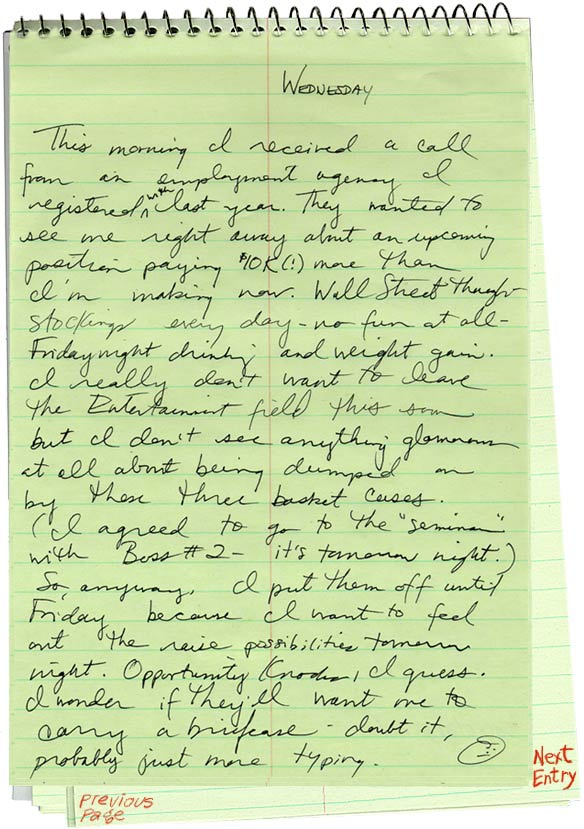 WEDNESDAY
This morning I received a call
from an employment agency I
registered with last year. They wanted to
see me right away about an upcoming
position paying $10K(!) more than
I'm making now. Wall Street though-
stockings every day - no fun at all -
Friday night drinking and weight gain.
I really don't want to leave
the Entertainment field this soon
but I don't see anything glamorous
at all about being dumped on
by these three basket cases.
(I agreed to go to the "seminar"
with Boss #2 - it's tomorrow night.)
So, anyway, I put them off until
Friday because I want to feel
out the raise possibilities tomorrow
night. Opportunity Knocks, I guess.
I wonder if they'll want me to
carry a briefcase - doubt it,
probably just more typing.
Next
Entry
Previous
Page